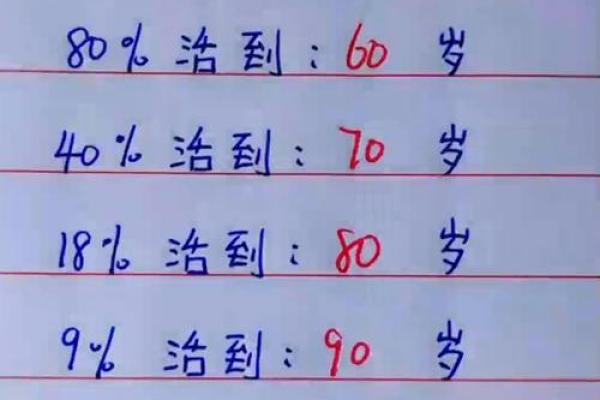 80% 活到：60 岁
40% 活到：70 岁
18% 活到：80 岁
9% 活到：90 岁